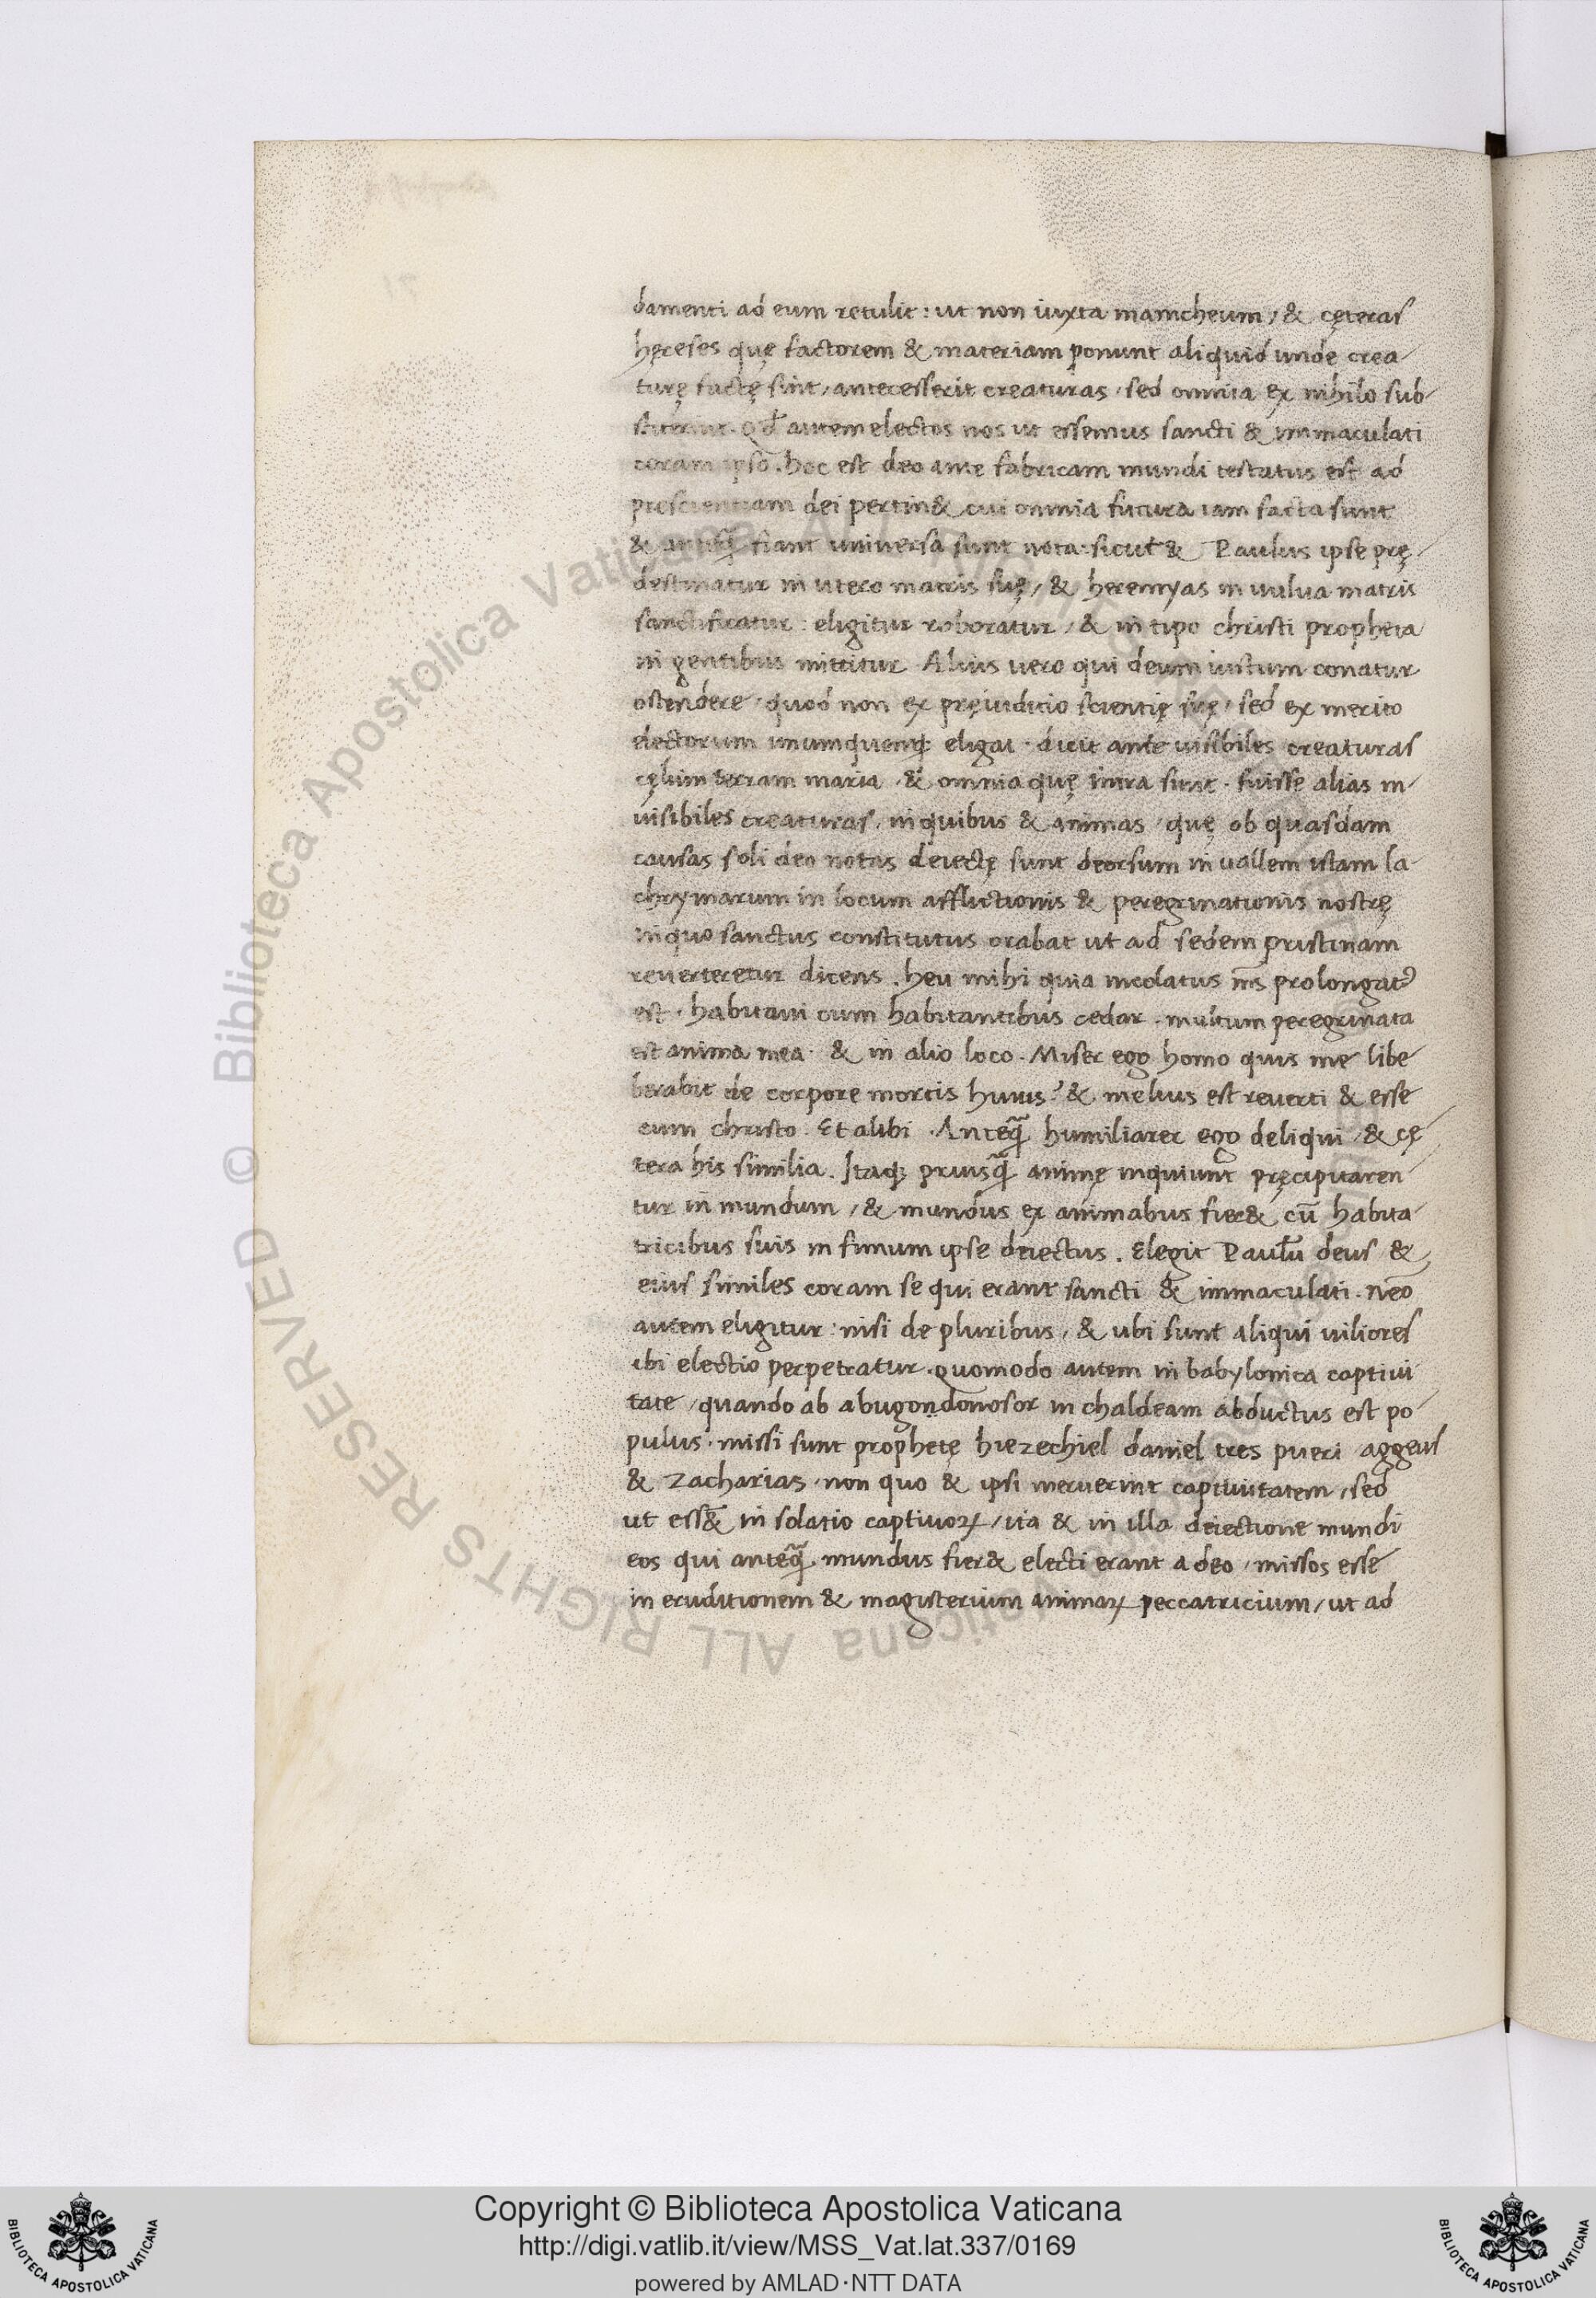 damenti ad eum retulit: ut non iuxta manicheum, & cęteras
hęreses quę factorem & materiam ponunt aliquid unde crea-
turę factę sint, antecesserit creaturas, sed omnia ex nihilo sub-
stiterint. Qđ autem electos nos ut essemus sancti & immaculati
coram ipso. hoc est deo ante fabricam mundi testatus est ad
prescientiam dei pertin& cui omnia futura iam facta sunt
& anteq̃ fiant universa sunt nota: sicut & Paulus ipse prę-
destinatur in utero matris suę, & heremyas in uulua matris
sanctificatur: eligitur roboratur, & in tipo christi propheta
in gentibus mittitur. Alius uero qui deum iustum conatur
ostendere, quod non ex pręiudicio scientię suę, sed ex merito
electorum unumquemq; eligat. dicit ante uisibiles creaturas
cęlum terram maria, & omnia quę intra sunt. fuisse alias in-
uisibiles creaturas, in quibus & animas, quę ob quasdam
causas soli deo notas deiectę sunt deorsum in uallem istam la-
chrymarum in locum afflictionis & peregrinationis nostrę
in quo sanctus constitutus orabat ut ad sedem pristinam
reuerteretur dicens. heu mihi quia incolatus m̄s prolongat᷑
est. habitaui cum habitantibus cedar. multum peregrinata
est anima mea. & in alio loco. Miser ego homo quis me libe
berabit de corpore mortis huius? & melius est reuerti & esse
cum christo. Et alibi. Anteq̃ humiliarer ego deliqui, & cę
tera his similia. Itaq; priusq̃ animę inquiunt pręcipitaren
tur in mundum, & mundus ex animabus fier& cū habita-
tricibus suis in fimum ipse deiectus. Elegit Paulū deus &
eius similes coram se qui erant sancti & immaculati. Nēo
autem eligitur: nisi de pluribus, & ubi sunt aliqui uiliores
ibi electio perpetratur. quomodo autem in babylonica captiui
tate, quando ab abugondonosor in chaldeam abductus est po-
pulus. missi sunt prophetę hiezechiel daniel tres pueri aggeus
& zacharias. non quo & ipsi meruerint captiuitatem, sed
ut ess& in solatio captiuoꝝ, ita & in illa deiectione mundi
eos qui anteq̃ mundus fier& electi erant a deo, missos esse
in eruditionem & magisterium animaꝝ peccatricium, ut ad
© Biblioteca Apostolica Vaticana ALL RIGHTS RESERVED
Copyright © Biblioteca Apostolica Vaticana
http://digi.vatlib.it/view/MSS_Vat.lat.337/0169
powered by AMLAD·NTT DATA
BIBLIOTECA APOSTOLICA VATICANA
BIBLIOTECA APOSTOLICA VATICANA